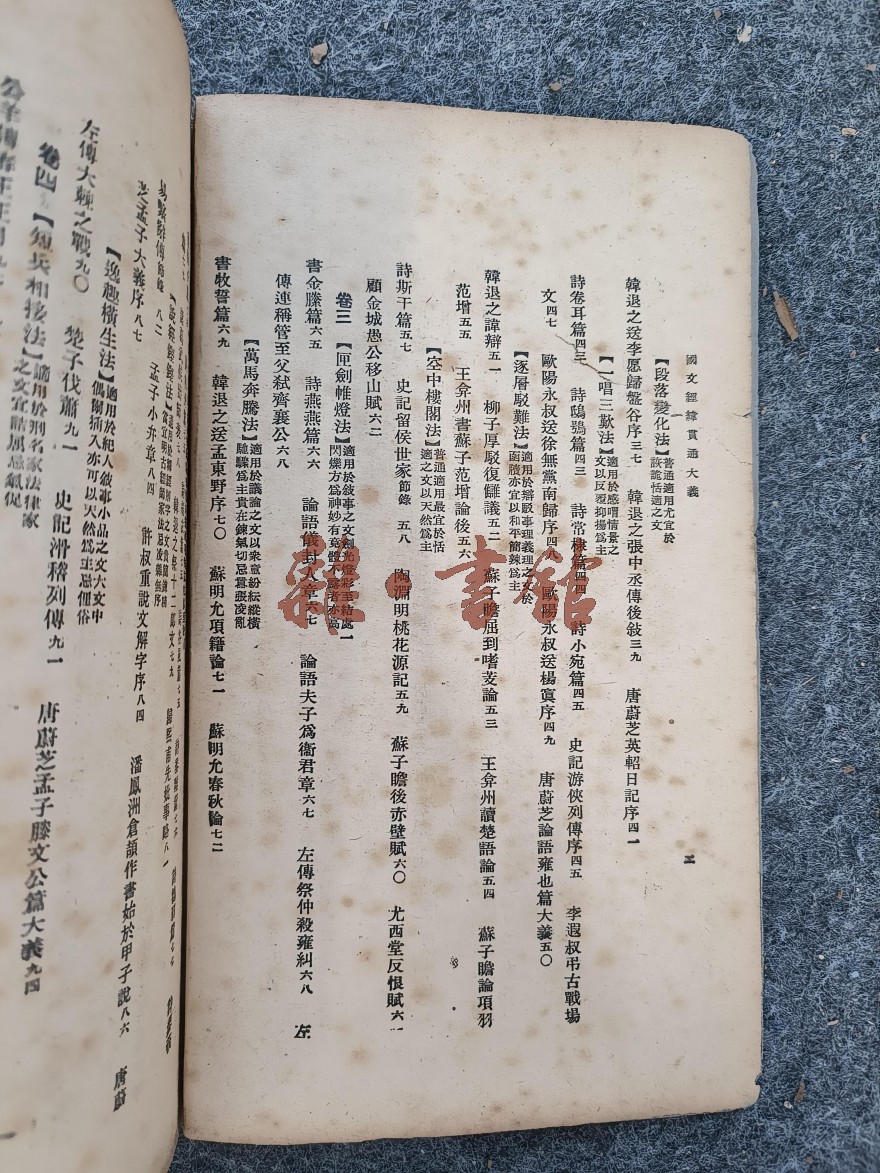 國文經緯貫通大義
二
【段落變化法】普通適用尤宜於
詼詭恬適之文
韓退之送李愿歸盤谷序三七 韓退之張中丞傳後敍三九 唐蔚芝英軺日記序四一
【一唱三歎法】適用於感喟情景之
文以反覆抑揚爲主
詩卷耳篇四三 詩鴟鴞篇四三 詩常棣篇四四 詩小宛篇四五 史記游俠列傳序四五 李遐叔弔古戰場
文四七 歐陽永叔送徐無黨南歸序四八 歐陽永叔送楊寘序四九 唐蔚芝論語雍也篇大義五〇
【逐層駁難法】適用於辯駁事理義理之文於
函牘亦宜以和平簡鍊爲主
韓退之諱辯五一 柳子厚駁復讎議五二 蘇子瞻屈到嗜芰論五三 王弇州讀楚語論五四 蘇子瞻論項羽
范增五五 王弇州書蘇子范增論後五六
【空中樓閣法】普通適用最宜於恬
適之文以天然爲主
詩斯干篇五七 史記留侯世家節錄 五八 陶淵明桃花源記五九 蘇子瞻後赤壁賦六〇 尤西堂反恨賦六一
顧金城愚公移山賦六二
卷三 【匣劍帷燈法】適用於敍事之文劍光燈彩至結處一
閃爍方爲神妙有竟體不露者亦高
書金縢篇六五 詩燕燕篇六六 論語儀封人章六七 論語夫子爲衞君章六七 左傳祭仲殺雍糾六八 左
傳連稱管至父弒齊襄公六八
【萬馬奔騰法】適用於議論之文以衆意紛紜縱橫
馳驟爲主貴在鍊氣切忌囂張凌亂
書牧誓篇六九 韓退之送孟東野序七〇 蘇明允項籍論七一 蘇明允春秋論七二
之孟子大義序八七 孟子小弁章八四 許叔重說文解字序八四 潘鳳洲倉頡作書始於甲子說八六 唐蔚
【逸趣橫生法】適用於紀人敍事小品之文大文中
偶爾插入亦可以天然爲主忌俚俗
左傳大棘之戰九〇 楚子伐蕭九一 史記滑稽列傳九一 唐蔚芝孟子滕文公篇大義九四
卷四 【短兵相接法】適用於刑名家法律家
之文宜詰屈忌氣促